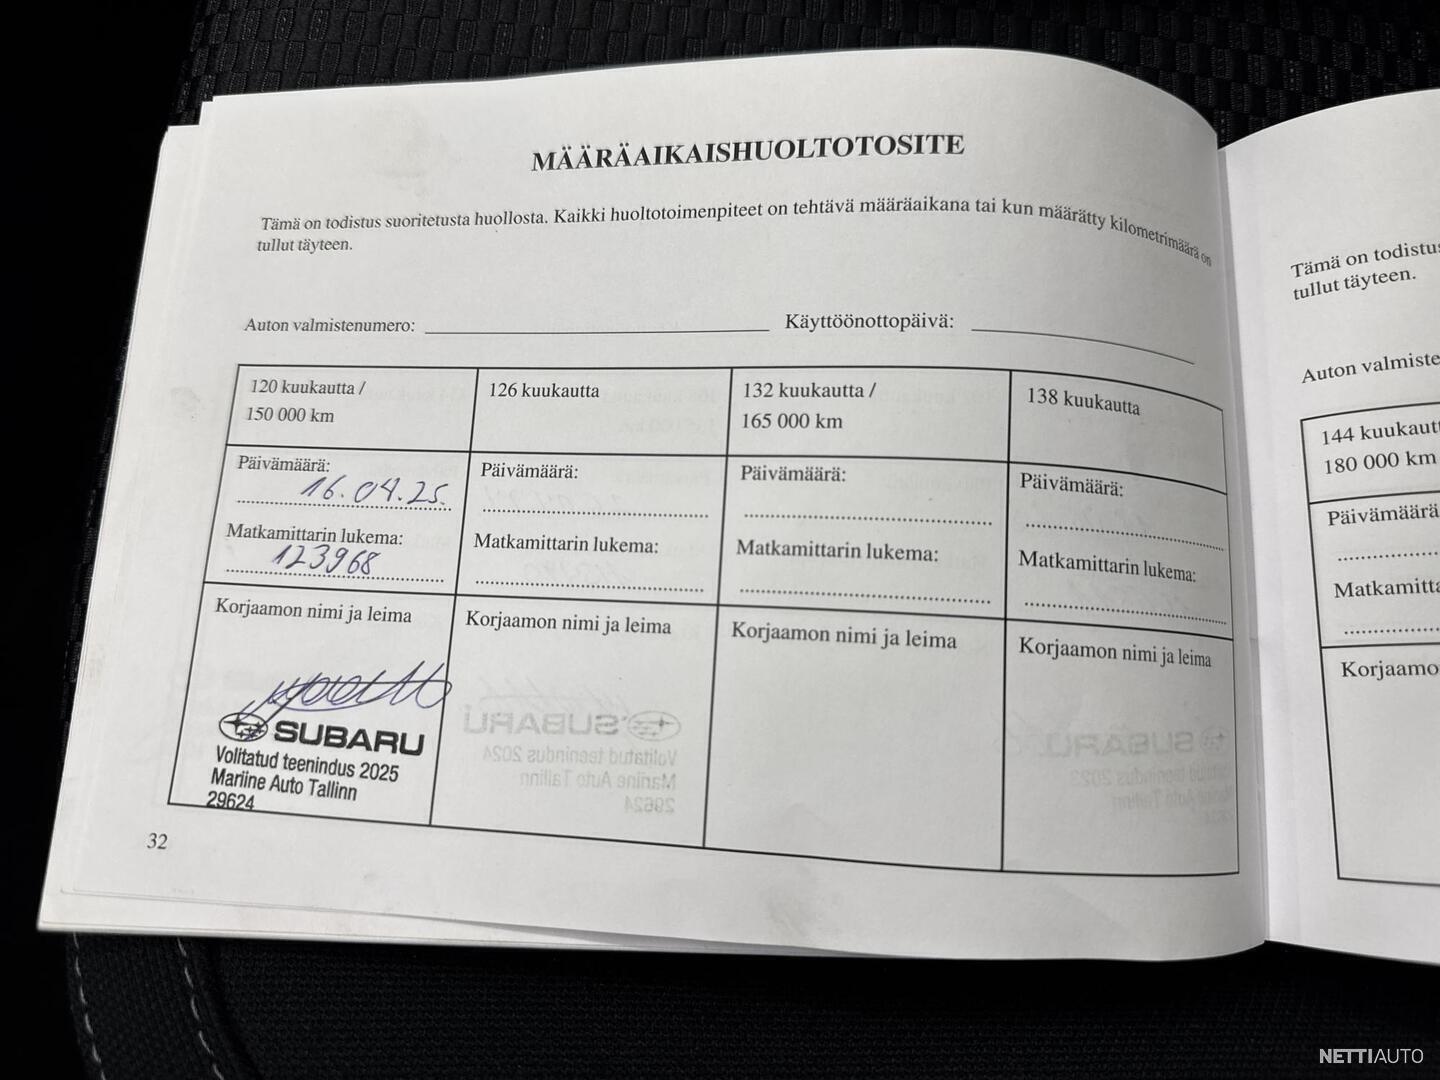 MÄÄRÄAIKAISHUOLTOTOSITE
Tämä on todistus suoritetusta huollosta. Kaikki huoltotoimenpiteet on tehtävä määräaikana tai kun määrätty kilometrimäärä on
tullut täyteen.
Auton valmistenumero: Käyttöönottopäivä:
120 kuukautta /
150 000 km
Päivämäärä:
16.04.25.
Matkamittarin lukema:
123968
Korjaamon nimi ja leima
SUBARU
Volitatud teenindus 2025
Mariine Auto Tallinn
29624
126 kuukautta
Päivämäärä:
Matkamittarin lukema:
Korjaamon nimi ja leima
132 kuukautta /
165 000 km
Päivämäärä:
Matkamittarin lukema:
Korjaamon nimi ja leima
138 kuukautta
Päivämäärä:
Matkamittarin lukema:
Korjaamon nimi ja leima
32
Tämä on todistus
tullut täyteen.
Auton valmiste
144 kuukautt
180 000 km
Päivämäärä
Matkamitta
Korjaamo
NETTIAUTO